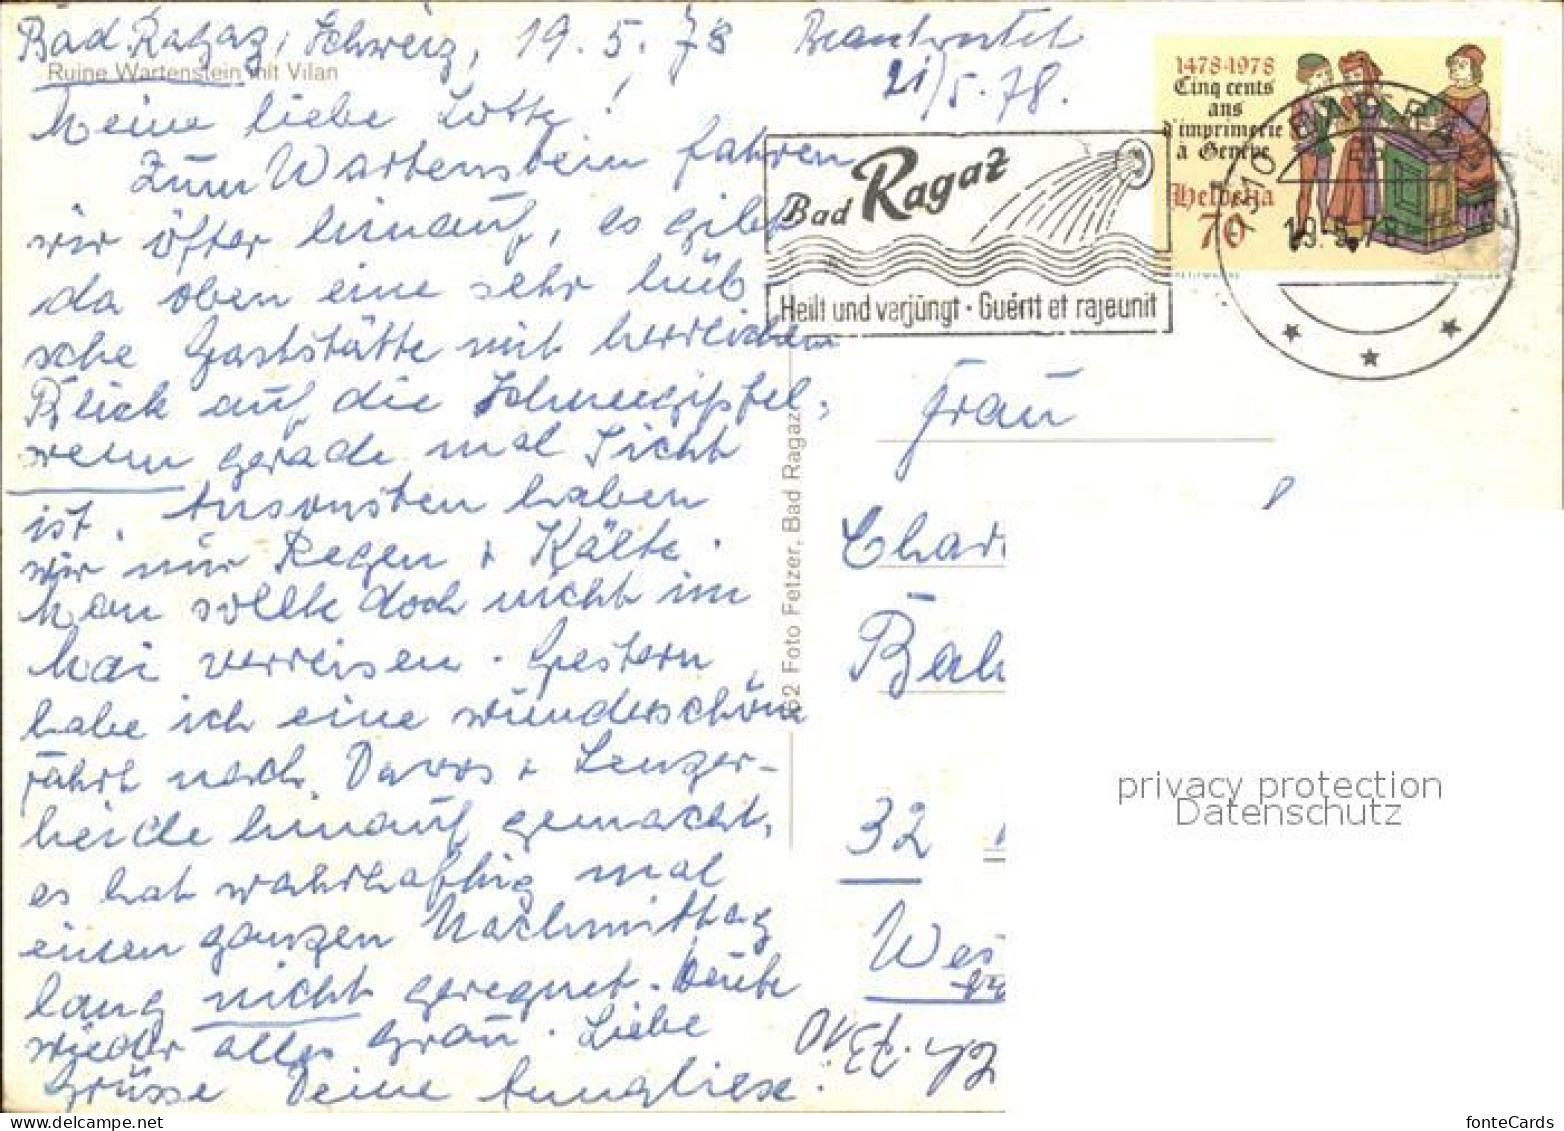 Bad Ragaz, Schweiz, 19.5.78
Beantwortet
21/5.78.
Ruine Wartenstein mit Vilan
Meine liebe Lotte!
Zum Wartenstein fahren
wir öfter hinauf, es gibt
da oben eine sehr hüb
sche Gaststätte mit herrlichem
Blick auf die Schneegipfel,
wenn gerade mal Sicht
ist. Ansonsten haben
wir nur Regen + Kälte.
Man sollte doch nicht im
Mai verreisen. Gestern
habe ich eine wunderschöne
Fahrt nach Davos + Lenzer-
heide hinauf gemacht,
es hat wahrhaftig mal
einen ganzen Nachmittag
lang nicht geregnet. Heute
wieder alles grau. Liebe
Grüsse Deine Annegliese.
862 Foto Fetzer, Bad Ragaz
Bad Ragaz
Heilt und verjüngt · Guérit et rajeunit
1478-1978
Cinq cents
ans
d'imprimerie
à Genève
Helvetia
70
7310 BAD RAGAZ
19-5-78
Frau
Char
Bah
32
Wes
privacy protection
Datenschutz
fonteCards